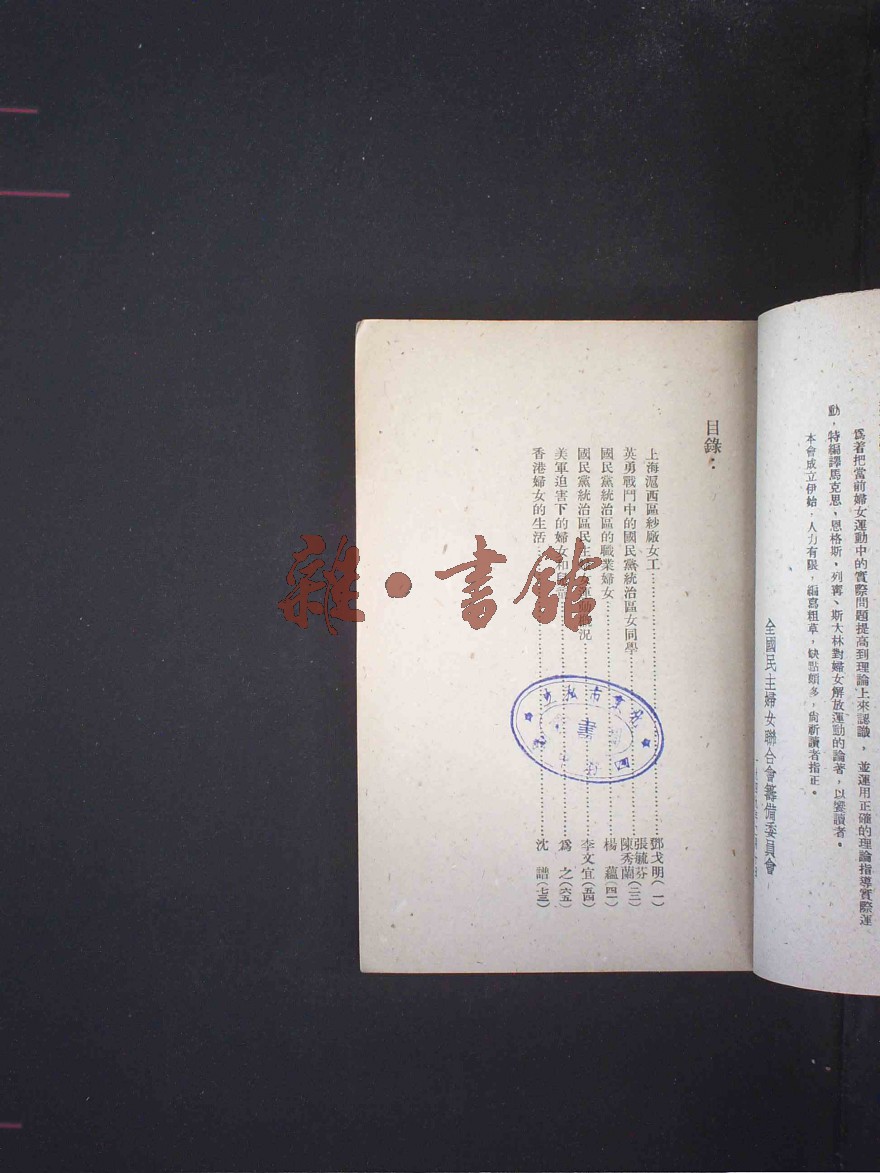 爲着把當前婦女運動中的實際問題提高到理論上來認識，並運用正確的理論指導實際運
動，特編譯馬克思，恩格斯，列寗、斯大林對婦女解放運動的論著，以饗讀者。
本會成立伊始，人力有限，編寫粗草，缺點頗多，尚祈讀者指正。
全國民主婦女聯合會籌備委員會
目錄：
上海滬西區紗廠女工……鄧戈明（一）
英勇戰鬥中的國民黨統治區女同學……張毓芬 陳秀蘭（二三）
國民黨統治區的職業婦女……楊 蘊（四一）
國民黨統治區民主婦女運動概況……李文宜（五四）
美軍迫害下的婦女和……爲 之（六五）
香港婦女的生活……沈 譜（七三）
雜·書館
書